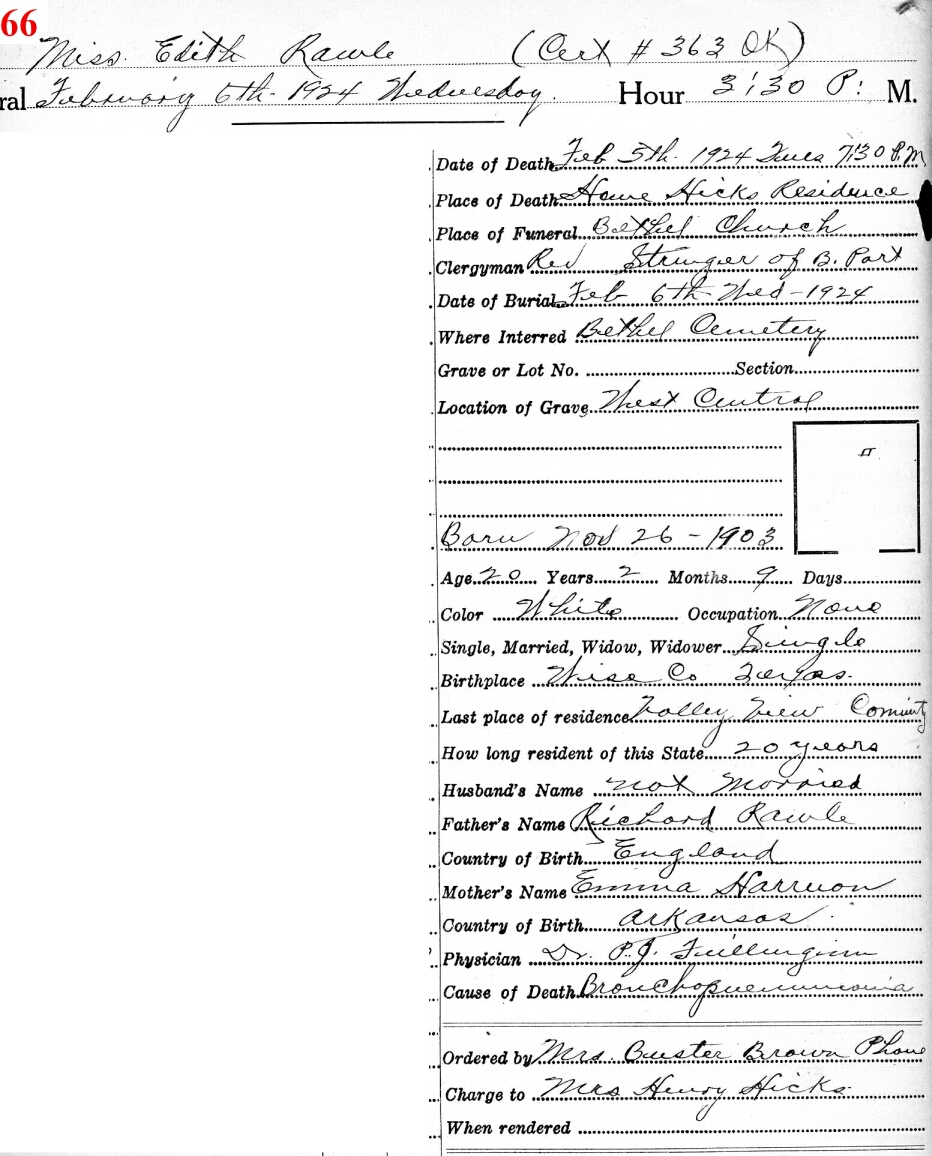 66
Miss. Edith Rawle (Cert # 363 OK)
ral February 6th - 1924 Wednesday. Hour 3:30 P: M.
Date of Death Feb 5th - 1924 Tues 7:30 P.M
Place of Death Home Hicks Residence
Place of Funeral Bethel Church
Clergyman Rev Stringer of B. Port
Date of Burial Feb 6th Wed - 1924
Where Interred Bethel Cemetery
Grave or Lot No. Section
Location of Grave West Central
Born Nov 26 - 1903
Age 20 Years 2 Months 9 Days
Color White Occupation None
Single, Married, Widow, Widower Single
Birthplace Wise Co Texas.
Last place of residence Valley View
How long resident of this State 20 years
Husband's Name not Married
Father's Name Richard Rawle
Country of Birth England
Mother's Name Emma
Country of Birth Arkansas
Physician Dr. P.J.
Cause of Death Bronchopneumonia
Ordered by Mrs Buster Brown Phone
Charge to Mrs Henry Hicks
When rendered